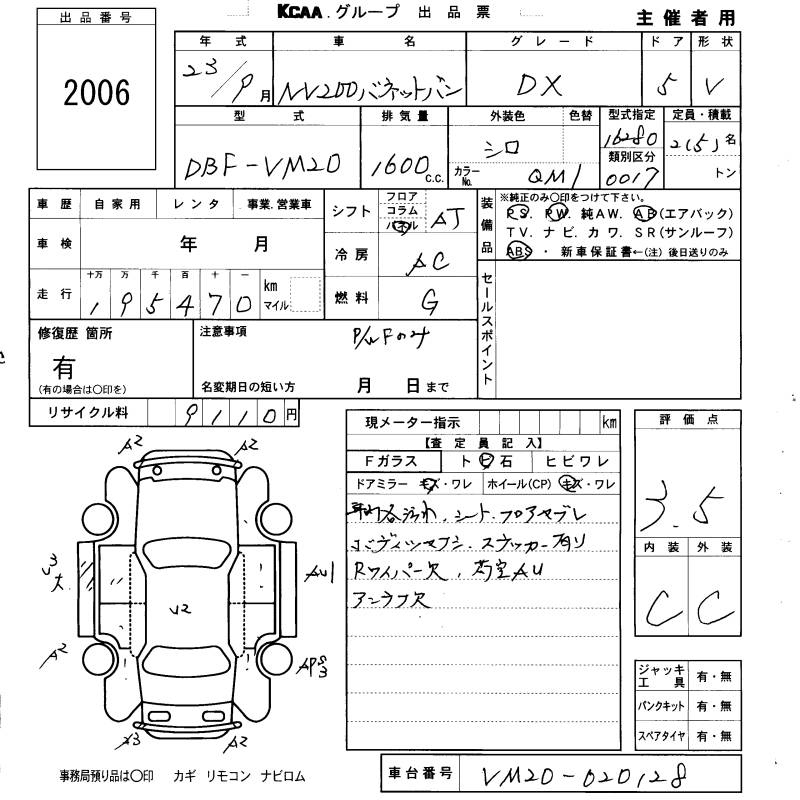 KCAA.グループ 出品票
主催者用
出品番号
2006
年式 車名 グレード ドア 形状
23/9月 NV200バネットバン DX 5 V
型式 排気量 外装色 色替 型式指定 定員・積載
DBF-VM20 1600c.c. シロ 16280 2(5)名
カラーNo. QM1 類別区分 0017 トン
車歴 自家用 レンタ 事業.営業車
車検 年 月
走行 十万 万 千 百 十 一
195470 km マイル
シフト フロア コラム パネル AT
冷房 AC
燃料 G
装備品 ※純正のみ○印をつけて下さい。
PS. PW. 純AW. AB(エアバック)
TV. ナビ. カワ. SR(サンルーフ)
ABS ・ 新車保証書←(注)後日送りのみ
セールスポイント
修復歴 箇所
有
(有の場合は○印を)
注意事項 P/W Fのみ
名変期日の短い方 月 日まで
リサイクル料 9110円
現メーター指示 km
【査定員記入】
Fガラス ト ビ 石 ヒビワレ
ドアミラー キズ・ワレ ホイール(CP) キズ・ワレ
シート.フロアヤブレ
ステッカー有リ
Rワイパー欠
アンテナ欠
評価点
3.5
内装 外装
C C
ジャッキ工具 有・無
パンクキット 有・無
スペアタイヤ 有・無
A2 A2
AU1
U2
A2
A2
事務局預り品は○印 カギ リモコン ナビロム
車台番号 VM20-020128